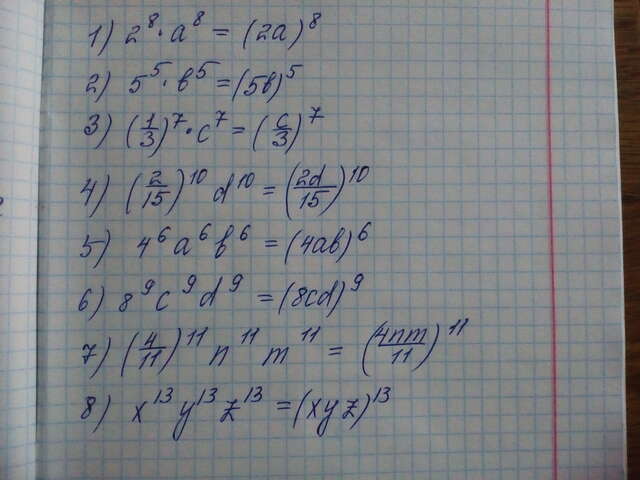 1) 2⁸·a⁸ = (2a)⁸
2) 5⁵·b⁵ = (5b)⁵
3) (1/3)⁷·c⁷ = (c/3)⁷
4) (2/15)¹⁰ d¹⁰ = (2d/15)¹⁰
5) 4⁶a⁶b⁶ = (4ab)⁶
6) 8⁹c⁹d⁹ = (8cd)⁹
7) (4/11)¹¹ n¹¹ m¹¹ = (4nm/11)¹¹
8) x¹³y¹³z¹³ = (xyz)¹³